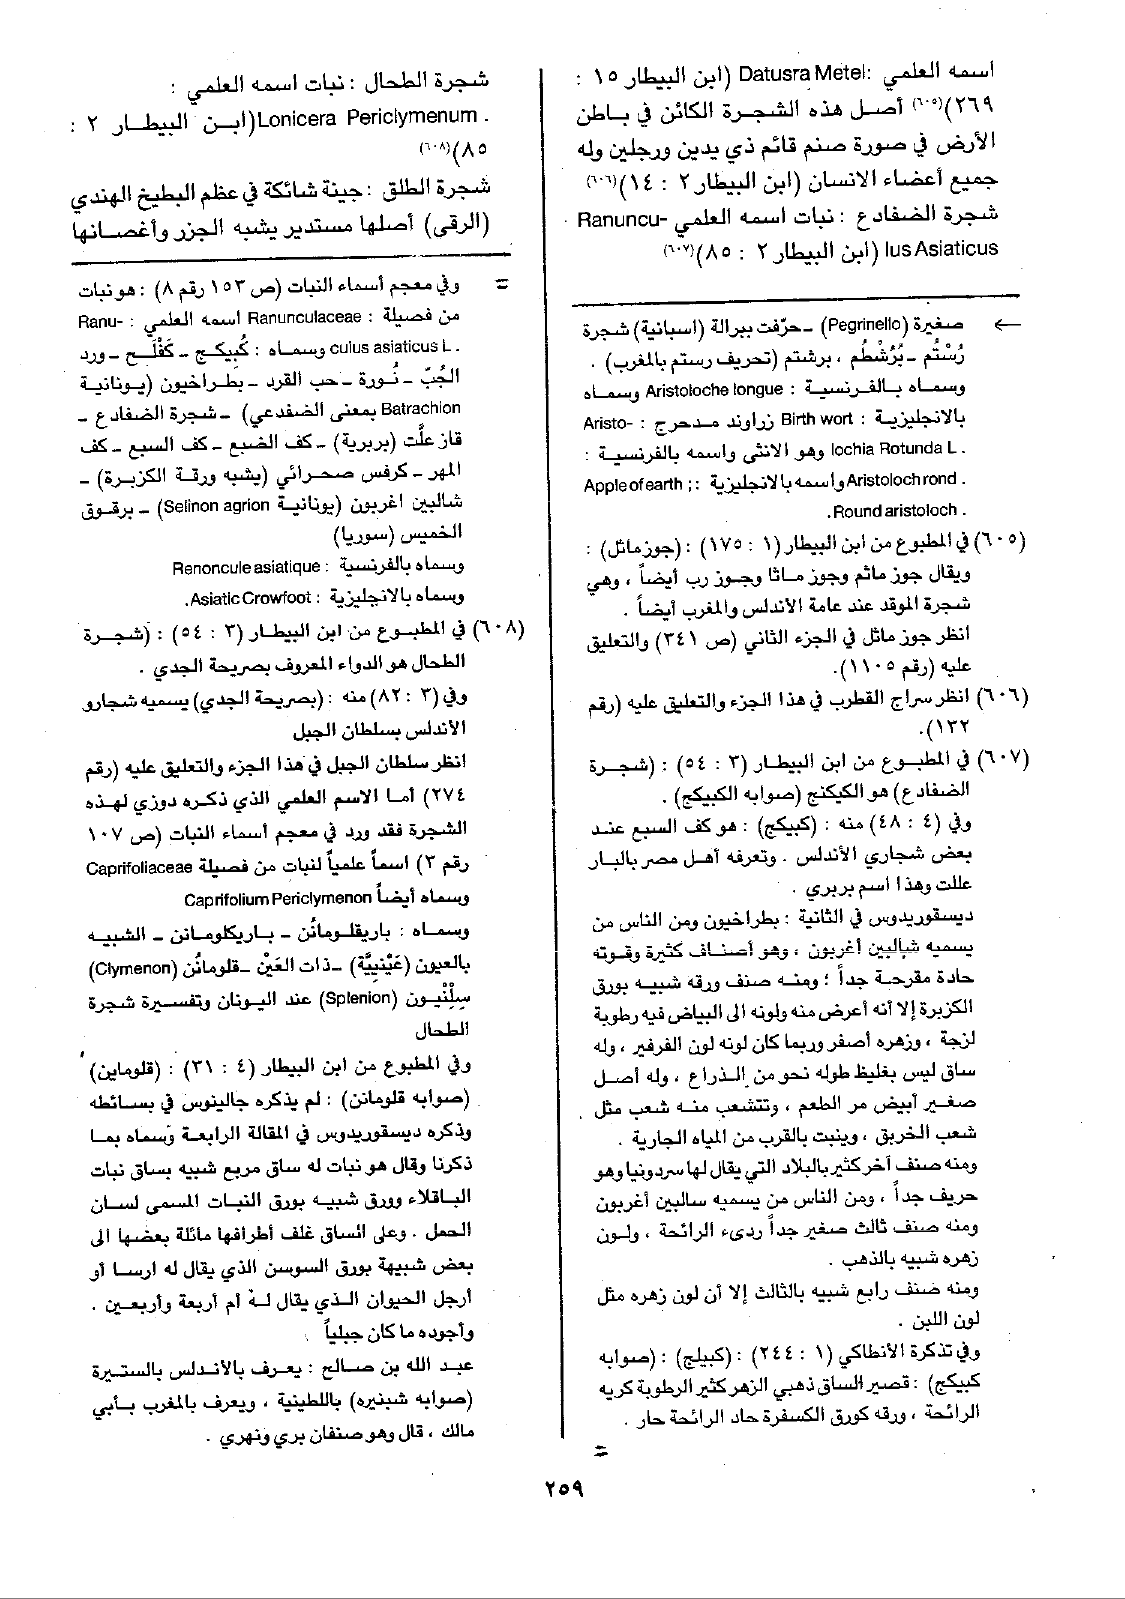 اسمه العلمي: Datusra Metel (ابن البيطار ١٥ :
٢٦٩)(٦٠٥) أصل هذه الشجرة الكائن في باطن
الأرض في صورة صنم قائم ذي يدين ورجلين وله
جميع أعضاء الانسان (ابن البيطار ٢ : ١٤)(٦٠٦)
شجرة الضفادع : نبات اسمه العلمي Ranuncu-
lus Asiaticus (ابن البيطار ٢ : ٨٥)(٦٠٧)
شجرة الطحال : نبات اسمه العلمي :
Lonicera Periclymenum . (ابن البيطار ٢ :
٨٥)(٦٠٨)
شجرة الطلق : جينة شائكة في عظم البطيخ الهندي
(الرقي) أصلها مستدير يشبه الجزر وأغصانها
← صغيرة (Pegrinello) ـ حرّفت ببرالة (اسبانية) شجرة
رُسْتُم ـ بُرُشْطُم ، برشتم (تحريف رستم بالمغرب) .
وسماه بالفرنسية : Aristoloche longue وسماه
بالانجليزية : Birth wort زراوند مدحرج : Aristo-
lochia Rotunda L . وهو الانثى واسمه بالفرنسية :
Aristoloch rond . واسمه بالانجليزية :; Apple of earth
Round aristoloch .
(٦٠٥) في المطبوع من ابن البيطار (١ : ١٧٥) : (جوزماثل) :
ويقال جوز ماثم وجوز ماثا وجوز رب أيضاً ، وهي
شجرة المرقد عند عامة الاندلس والمغرب أيضاً .
انظر جوز ماثل في الجزء الثاني (ص ٣٤١) والتعليق
عليه (رقم ١١٠٥).
(٦٠٦) انظر سراج القطرب في هذا الجزء والتعليق عليه (رقم
١٣٢).
(٦٠٧) في المطبوع من ابن البيطار (٣ : ٥٤) : (شجرة
الضفادع) هو الكيكنج (صوابه الكبيكج) .
وفي (٤ : ٤٨) منه : (كبيكج) : هو كف السبع عند
بعض شجاري الأندلس . وتعرفه أهل مصر بالبار
علت وهذا اسم بربري .
ديسقوريدوس في الثانية : بطراخيون ومن الناس من
يسميه شالبين أغربون ، وهو أصناف كثيرة وقوته
حادة مقرحة جداً ؛ ومنه صنف ورقه شبيه بورق
الكزبرة إلا أنه أعرض منه ولونه الى البياض فيه رطوبة
لزجة ، وزهره أصفر وربما كان لونه لون الفرفير ، وله
ساق ليس بغليظ طوله نحو من الذراع ، وله أصل
صغير أبيض مر الطعم ، وتتشعب منه شعب مثل
شعب الخربق ، وينبت بالقرب من المياه الجارية .
ومنه صنف آخر كثير بالبلاد التي يقال لها سردونيا وهو
حريف جداً ، ومن الناس من يسميه سالبين أغربون
ومنه صنف ثالث صغير جداً رديء الرائحة ، ولون
زهره شبيه بالذهب .
ومنه صنف رابع شبيه بالثالث إلا أن لون زهره مثل
لون اللبن .
وفي تذكرة الأنطاكي (١ : ٢٤٤) : (كبيلج) : (صوابه
كبيكج) : قصير الساق ذهبي الزهر كثير الرطوبة كريه
الرائحة ، ورقه كورق الكسفرة حاد الرائحة حار .
=
= وفي معجم أسماء النبات (ص ١٥٣ رقم ٨) : هو نبات
من فصيلة : Ranunculaceae اسمه العلمي : Ranu-
culus asiaticus L . وسماه : كُبيكج ـ كَفْلَج ـ ورد
الجُبّ ـ نُورة ـ حب القرد ـ بطراخيون (يونانية
Batrachion بمعنى الضفدعي) ـ شجرة الضفادع ـ
قاز علّت (بربرية) ـ كف الضبع ـ كف السبع ـ كف
المهر ـ كرفس صحرائي (يشبه ورقة الكزبرة) ـ
شالبين اغربون (يونانية Selinon agrion) ـ برقوق
الخميس (سوريا)
وسماه بالفرنسية : Renoncule asiatique
وسماه بالانجليزية : Asiatic Crowfoot.
(٦٠٨) في المطبوع من ابن البيطار (٣ : ٥٤) : (شجرة
الطحال هو الدواء المعروف بصريحة الجدي .
وفي (٣ : ٨٢) منه : (بصريحة الجدي) يسميه شجارو
الأندلس بسلطان الجبل
انظر سلطان الجبل في هذا الجزء والتعليق عليه (رقم
٢٧٤) أما الاسم العلمي الذي ذكره دوزي لهذه
الشجرة فقد ورد في معجم أسماء النبات (ص ١٠٧
رقم ٣) اسماً علمياً لنبات من فصيلة Caprifoliaceae
وسماه أيضاً Caprifolium Periclymenon
وسماه : باريقلومائن ـ باريكلومانن ـ الشبيه
بالعيون (عَيْنِيَّة) ـ ذات العَيْن ـ قلومائن (Clymenon)
سِلْنيون (Splenion) عند اليونان وتفسيرة شجرة
الطحال
وفي المطبوع من ابن البيطار (٤ : ٣١) : (قلوماين)
(صوابه قلومانن) : لم يذكره جالينوس في بسائطه
وذكره ديسقوريدوس في المقالة الرابعة وسماه بما
ذكرنا وقال هو نبات له ساق مربع شبيه بساق نبات
الباقلاء وورق شبيه بورق النبات المسمى لسان
الحمل . وعلى الساق غلف أطرافها مائلة بعضها الى
بعض شبيهة بورق السوسن الذي يقال له ارسا أو
أرجل الحيوان الذي يقال له أم أربعة وأربعين .
وأجوده ما كان جبلياً .
عبد الله بن صالح : يعرف بالأندلس بالستيرة
(صوابه شبنيره) باللطينية ، ويعرف بالمغرب بأبي
مالك ، قال وهو صنفان بري ونهري .
٢٥٩